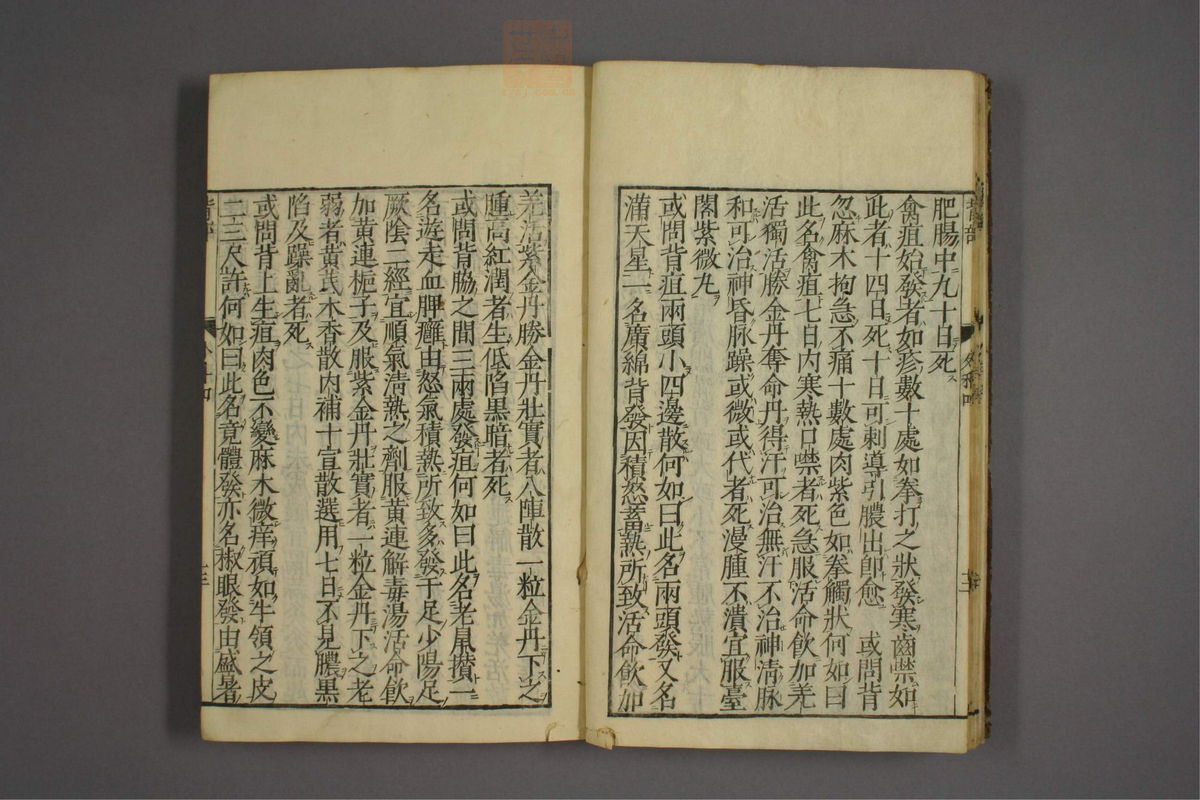 肥腸中九十日死
禽疽始發者如疹數十處如拳打之狀發寒齒噤如
此者十四日死十日可刺導引膿出卽愈　或問背
忽麻木拘急不痛十數處肉紫色如拳觸狀何如曰
此名禽疽七日内寒熱口噤者死急服活命飮加羌
活獨活勝金丹奪命丹得汗可治無汗不治神清脉
和可治神昏脉躁或微或代者死漫腫不潰宜服臺
閣紫微丸
或問背疽兩頭小四邊散何如曰此名兩頭發又名
滿天星一名廣綿背發因積怒蓄熱所致活命飮加
羌活紫金丹勝金丹壯實者八陣散一粒金丹下之
腫高紅潤者生低陷黒暗者死
或問背脇之間三兩處發疽何如曰此名老鼠攅一
名遊走血脾癰由怒氣積熱所致多發于足少陽足
厥陰二經宜順氣清熱之劑服黃連解毒湯活命飮
加黃連梔子及服紫金丹壯實者一粒金丹下之老
弱者黃芪木香散内補十宣散選用七日不見膿黒
陷及躁亂者死
或問背上生疽肉色不變麻木微痒頑如牛領之皮
二三尺許何如曰此名竟體發亦名椒眼發由感暑